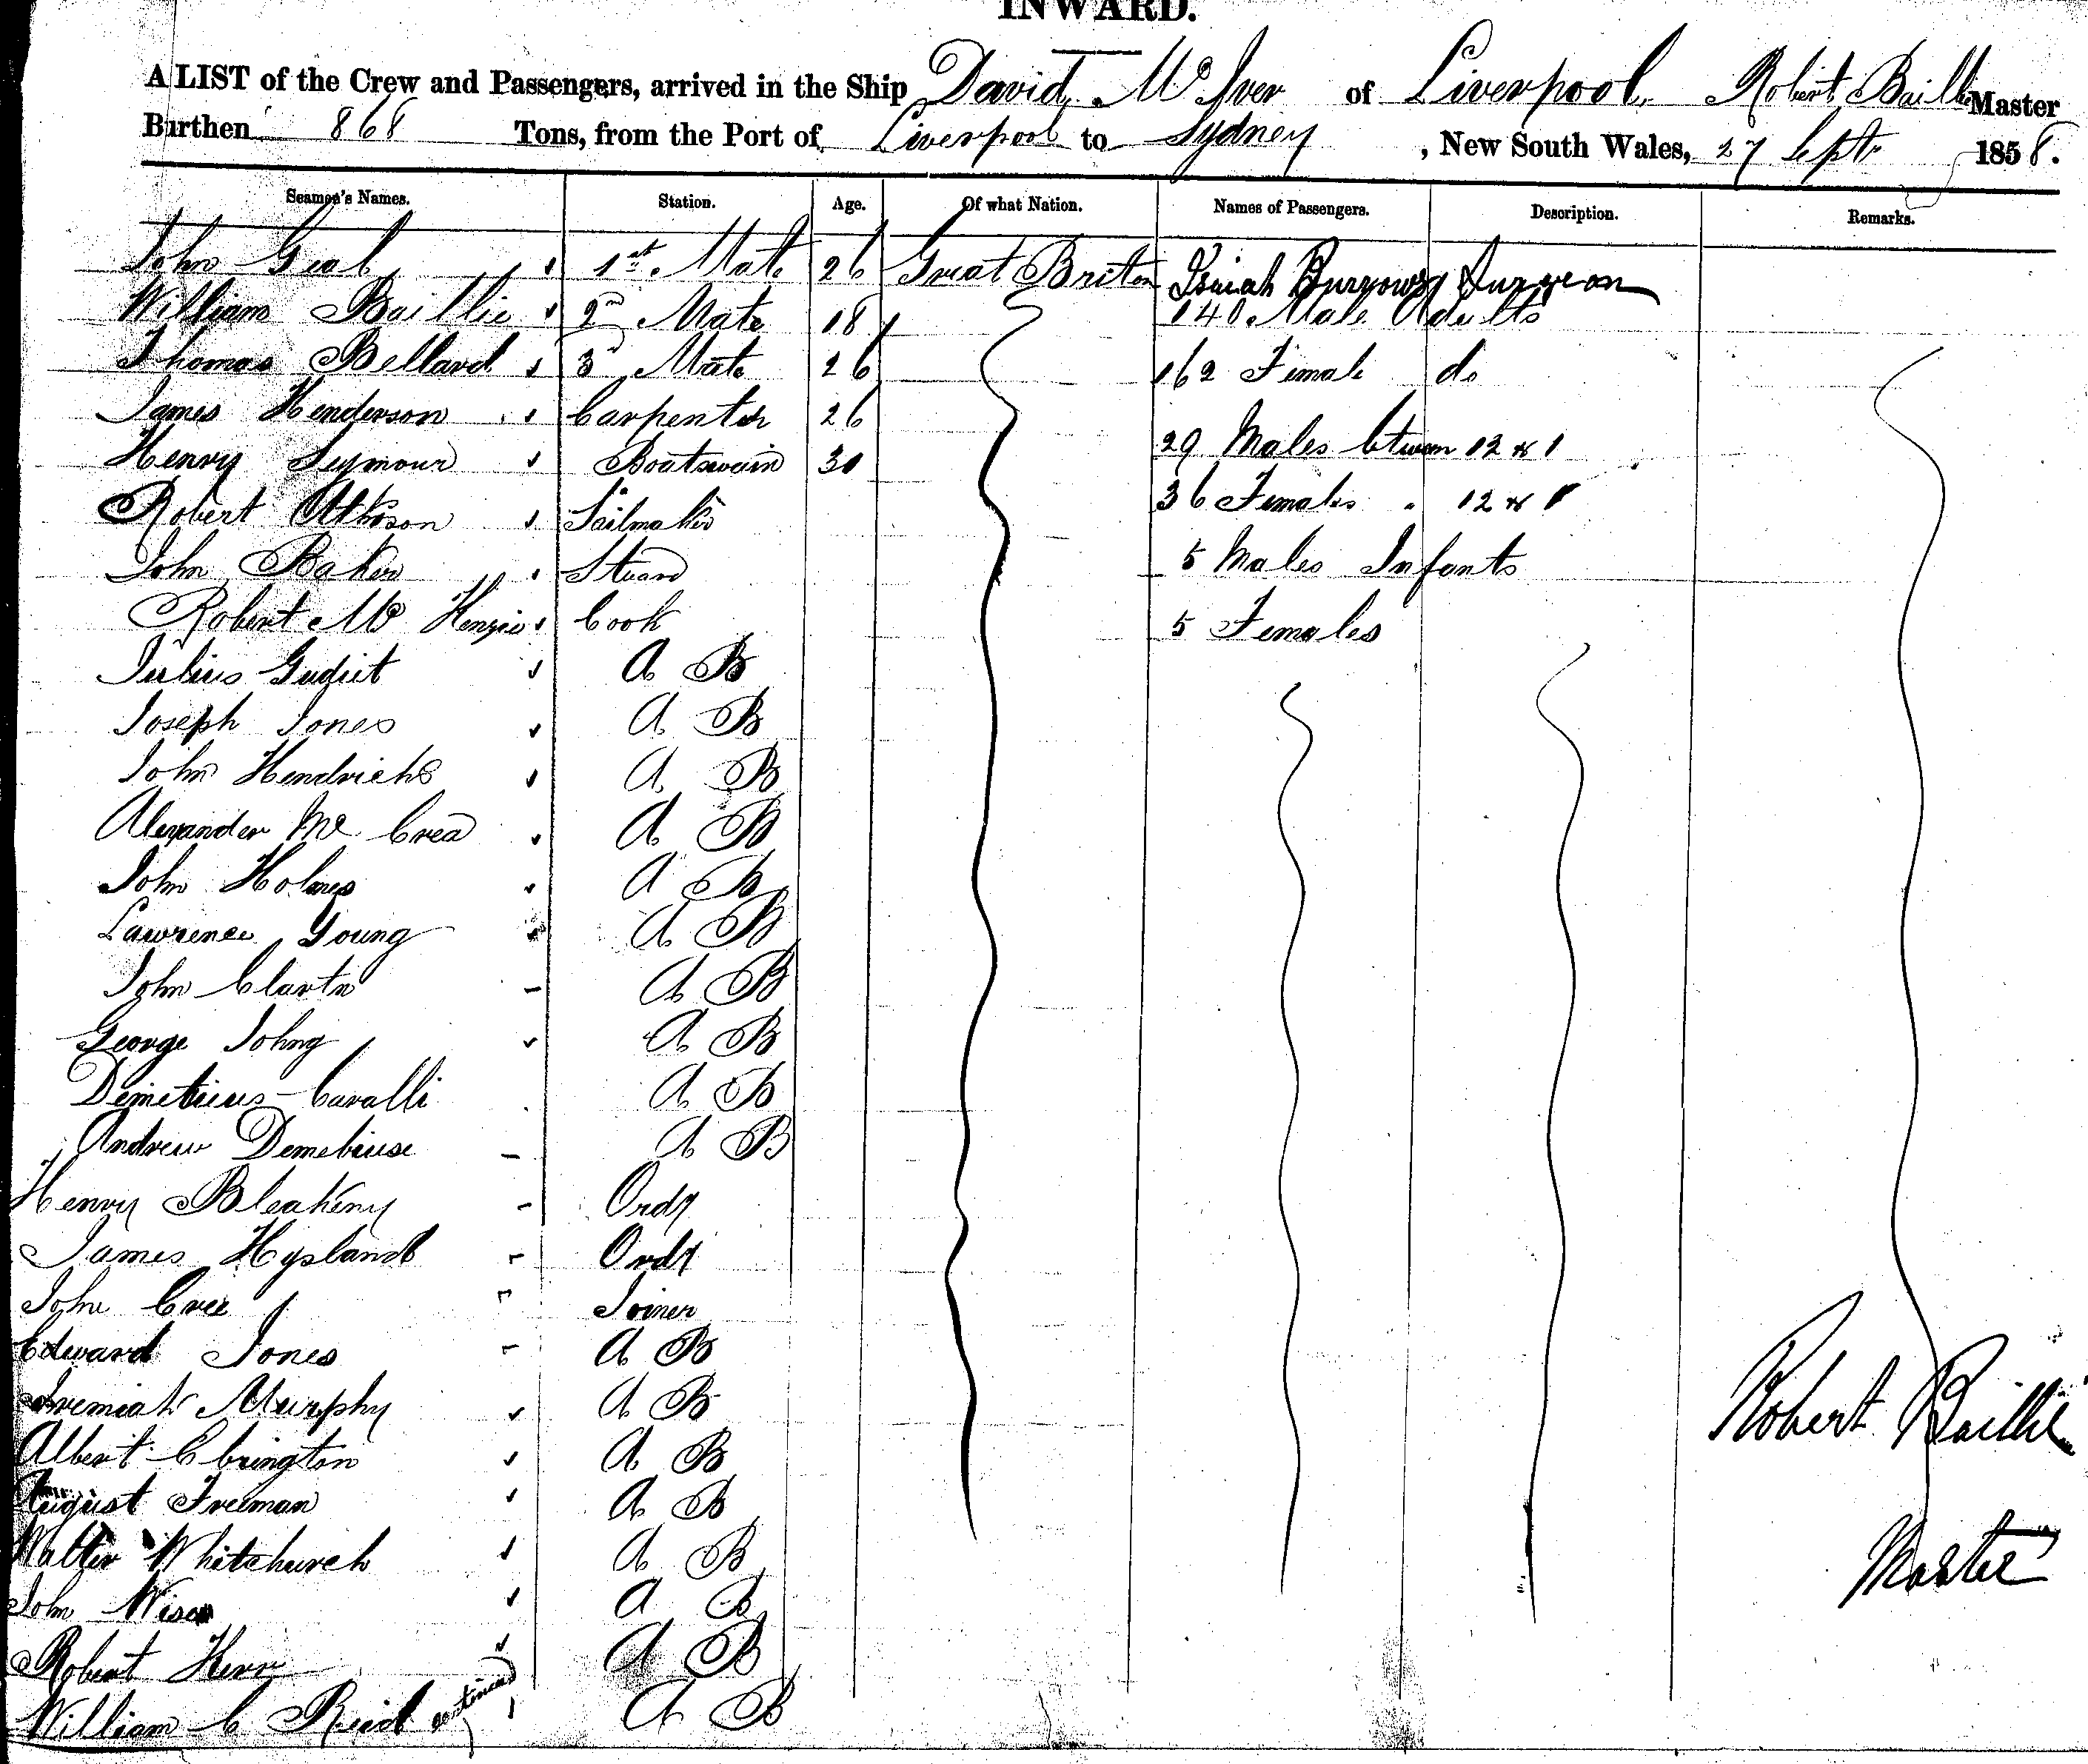 INWARD.
A LIST of the Crew and Passengers, arrived in the Ship David McIver of Liverpool, Robert Baillie Master
Burthen 868 Tons, from the Port of Liverpool to Sydney, New South Wales, 27 Sept 1858.
Seamen's Names. Station. Age. Of what Nation. Names of Passengers. Description. Remarks.
John 1st Mate 26 Great Briton Isaiah Burrows Surgeon
William Baillie 2nd Mate 18 140 Male Adults
Thomas Bellard 3d Mate 26 162 Female do
James Henderson Carpenter 26
Henry Seymour Boatswain 30 29 Males btween 12 & 1
Robert Sailmaker 36 Females " 12 & 1
John Baker Steward 5 Males Infants
Robert Mc Kenzie Cook 5 Females
Julius A B
Joseph Jones A B
John Hendricks A B
Alexander Mc Crea A B
John Holmes A B
Lawrence Young A B
John A B
George A B
Demetrius Cavalli A B
Andrew A B
Henry Bleakeny Ordy
James Hysland Ordy
John Cree Joiner
Edward Jones A B
Jremiah Murphy A B
Robert Baillie
Albert A B
August Freeman A B
Walter Whitchurch A B
Master
John Wise A B
Robert Kerr A B
William C Reid continued A B